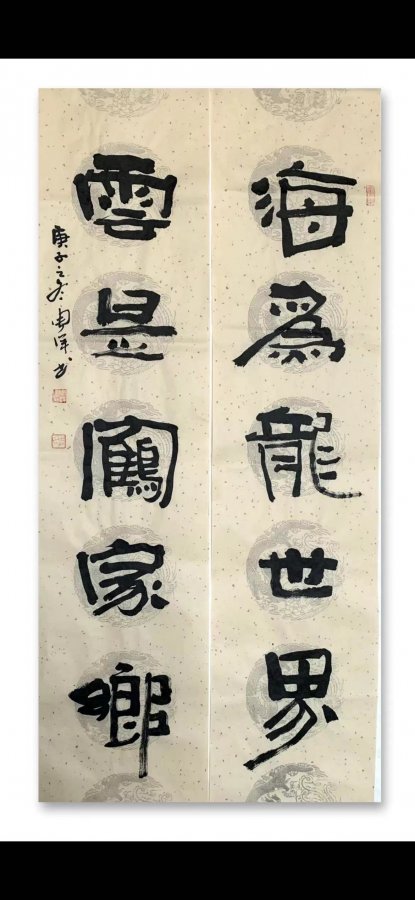 海爲龍世界
雲是鶴家鄉
庚子之冬